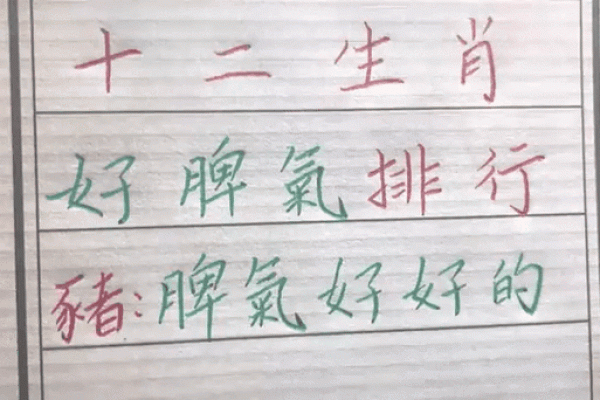 十二生肖
好脾氣排行
豬:脾氣好好的